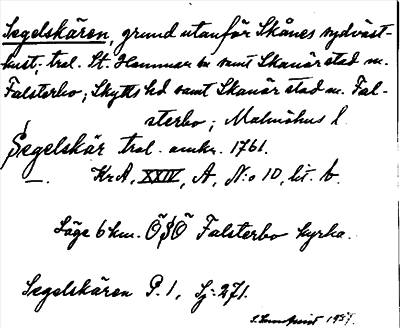 Segelskären, grund utanför Skånes sydväst-
kust; trol. St. Hammar sn samt Skanör stad m.
Falsterbo; Skytts hd samt Skanör stad m. Fal-
sterbo; Malmöhus l.
Segelskär trol. omkr. 1761.
— . KrA, XXIV, A, N:o 10, lit. b.
Läge 6 km. ÖSÖ Falsterbo kyrka.
Segelskären P. 1, Sj: 271.
1957.